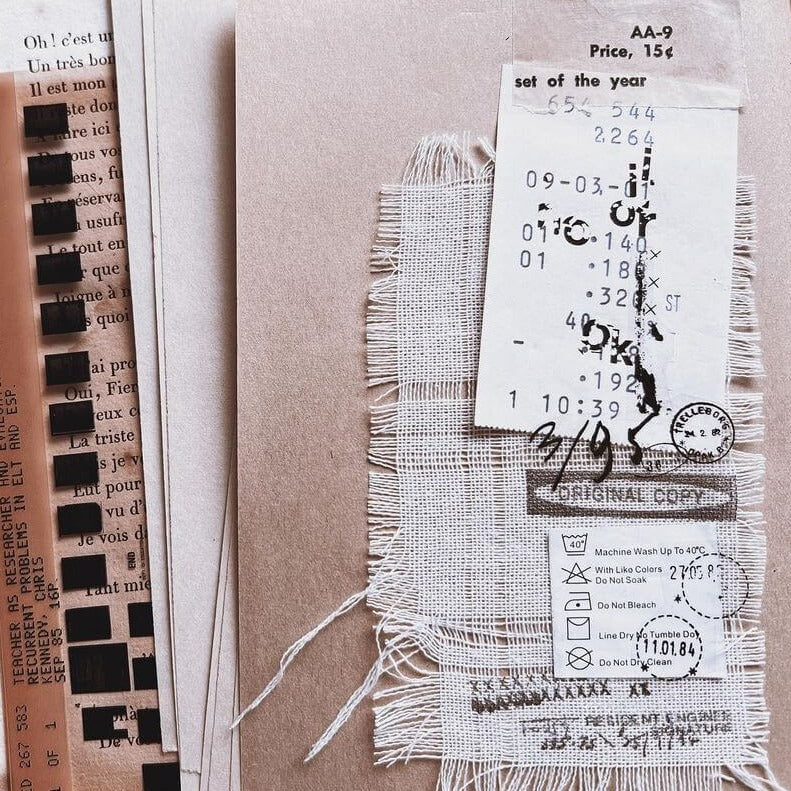 Oh ! c'est un
Un très bon
Il est mon
reste don
faire ici
tous vos
ens, fu
réserva
usufr
Le tout en
que
Joigne à m
quoi
ai pro
Oui, Fier
eux c
La triste
je v
Eut pour
vu d'
Je vois d
END
Tant mie
De vo
TEACHER AS RESEARCHER AND EVALUA
RECURRENT PROBLEMS IN ELT AND ESP.
KENNEDY, CHRIS
SEP 85 16P
ED 267 583
1 OF 1
AA-9
Price, 15¢
set of the year
654 544
2264
09-03-01
01 •140
01 •180
•320 ST
•192
1 10:39
3/95
TRELLEBORG
ORIGINAL COPY
40°
Machine Wash Up To 40°C
With Like Colors
Do Not Soak
Do Not Bleach
Line Dry No Tumble Dry
Do Not Dry Clean
11.01.84
RESIDENT ENGINEER
SIGNATURE